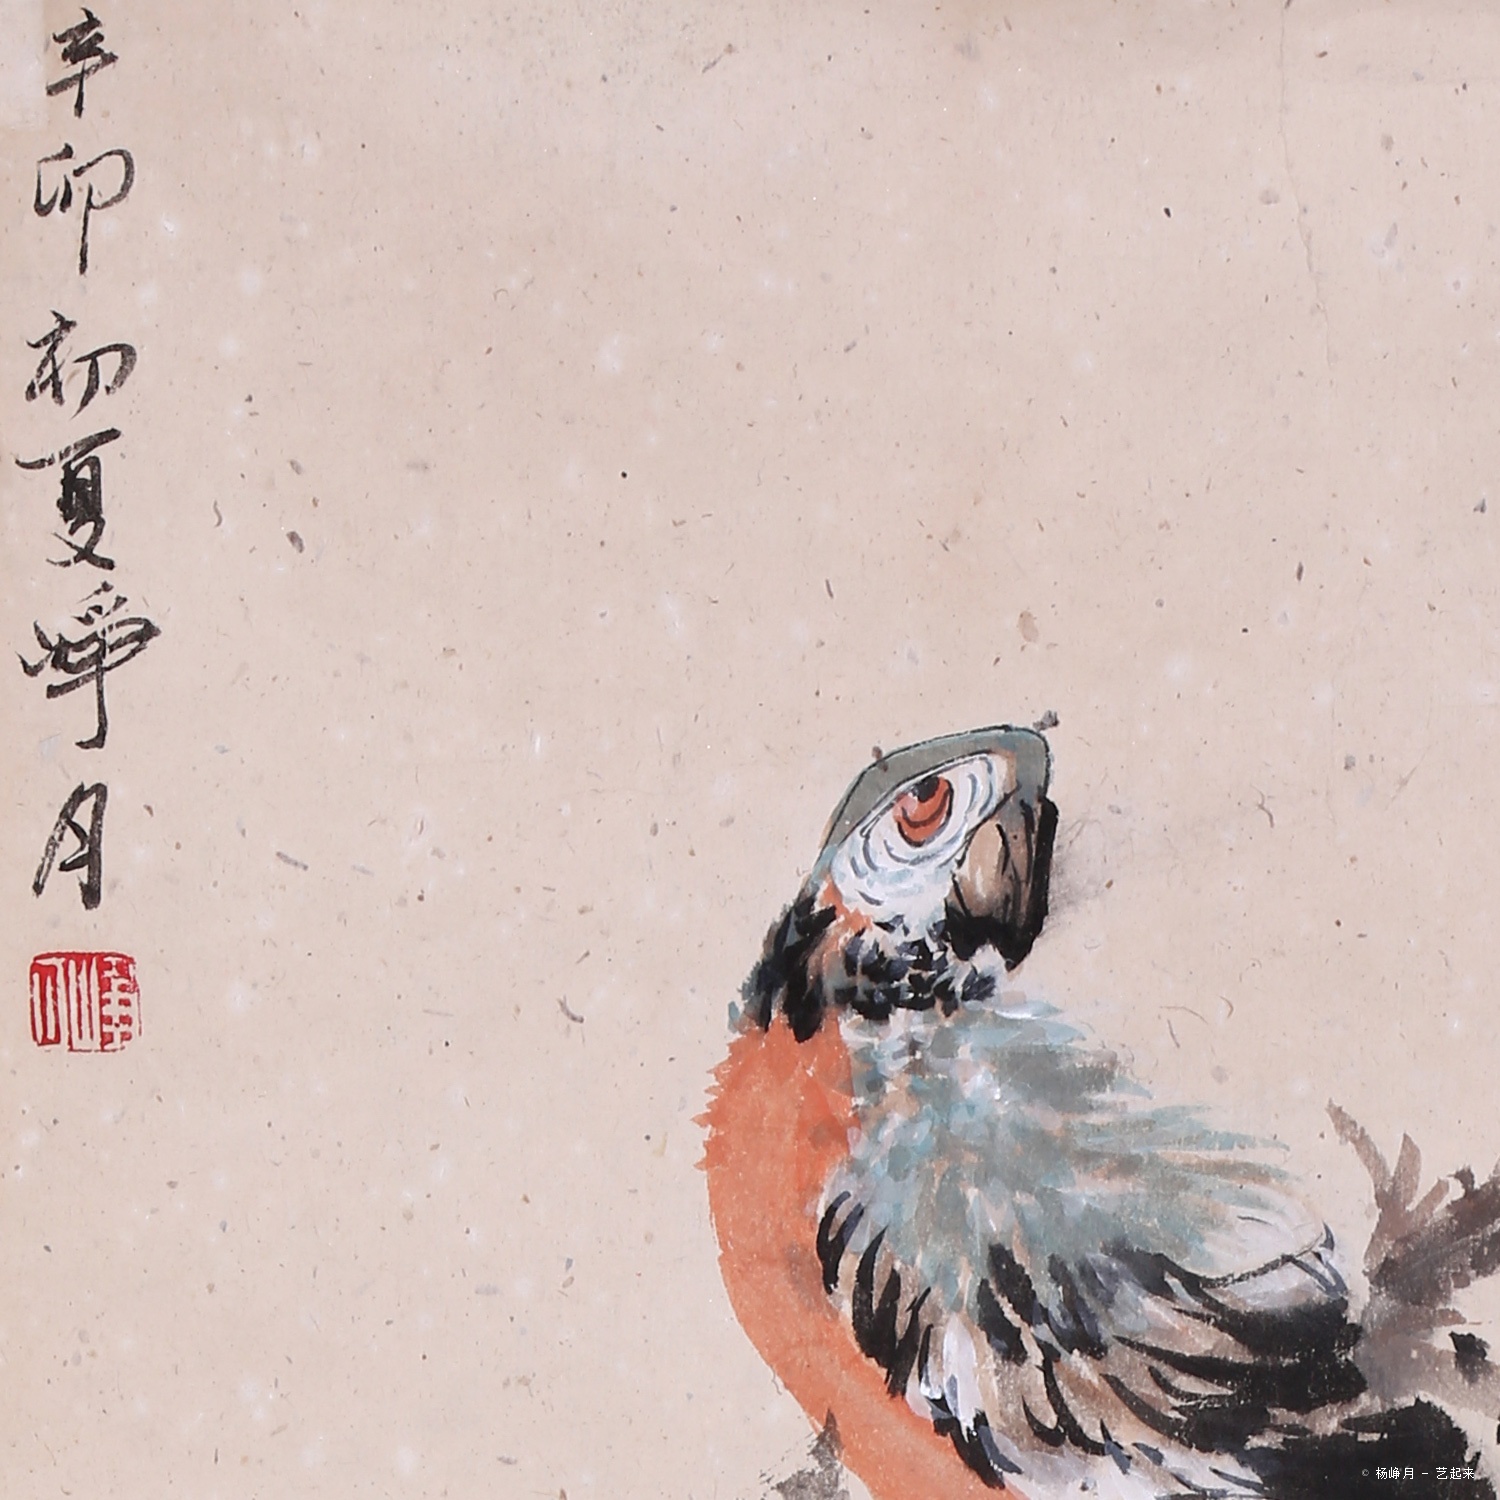 辛卯初夏峥月
© 杨峥月 – 艺起来